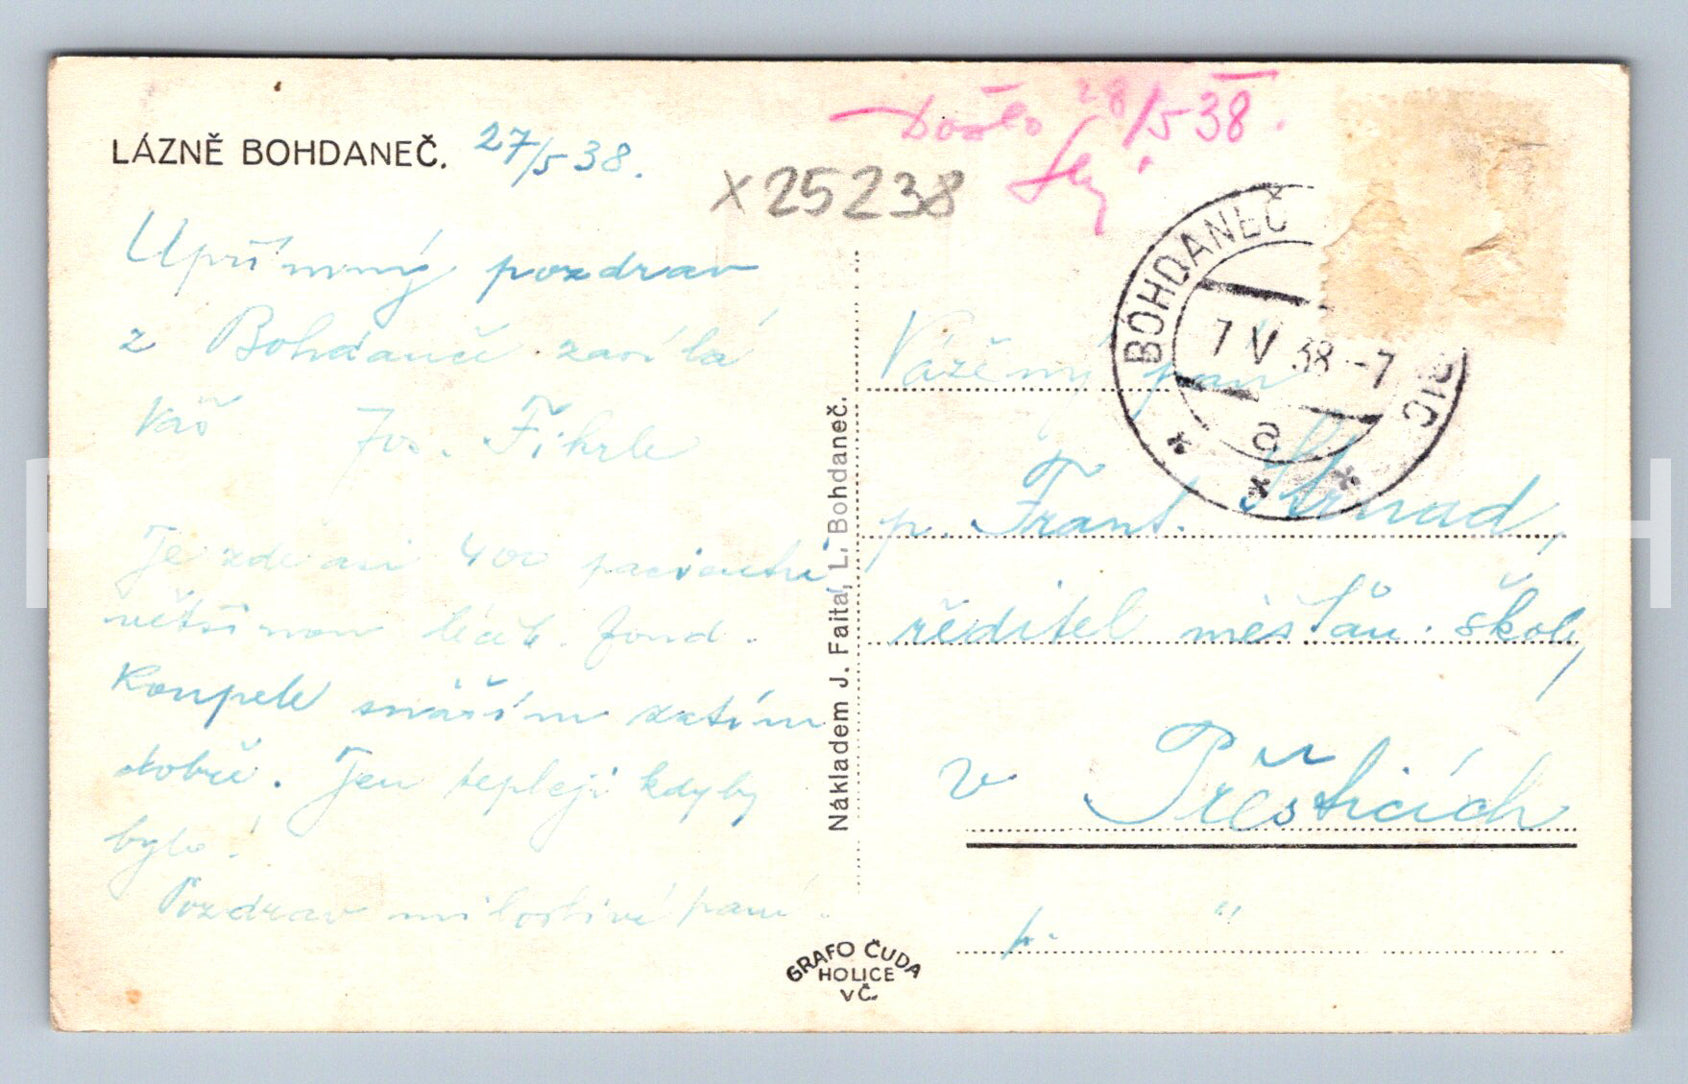 LÁZNĚ BOHDANEČ. 27/5 38.
Došlo 28/5 38.
x 25238
Upřímný pozdrav
z Bohdanče zasílá
Váš Jos. Fikrle
Je zde asi 400 pacientů
většinou léčeb. fond.
Koupele snáším zatím
dobře. Jen tepleji kdyby
bylo!
Pozdrav milostivé paní.
Nákladem J. Faltal, L. Bohdaneč.
GRAFO ČUDA
HOLICE
V Č.
BOHDANEČ
7 V 38 -7
a
Vážený pan
p. Frant. Strnad,
ředitel měšťan. školy,
v Přešticích
p. "